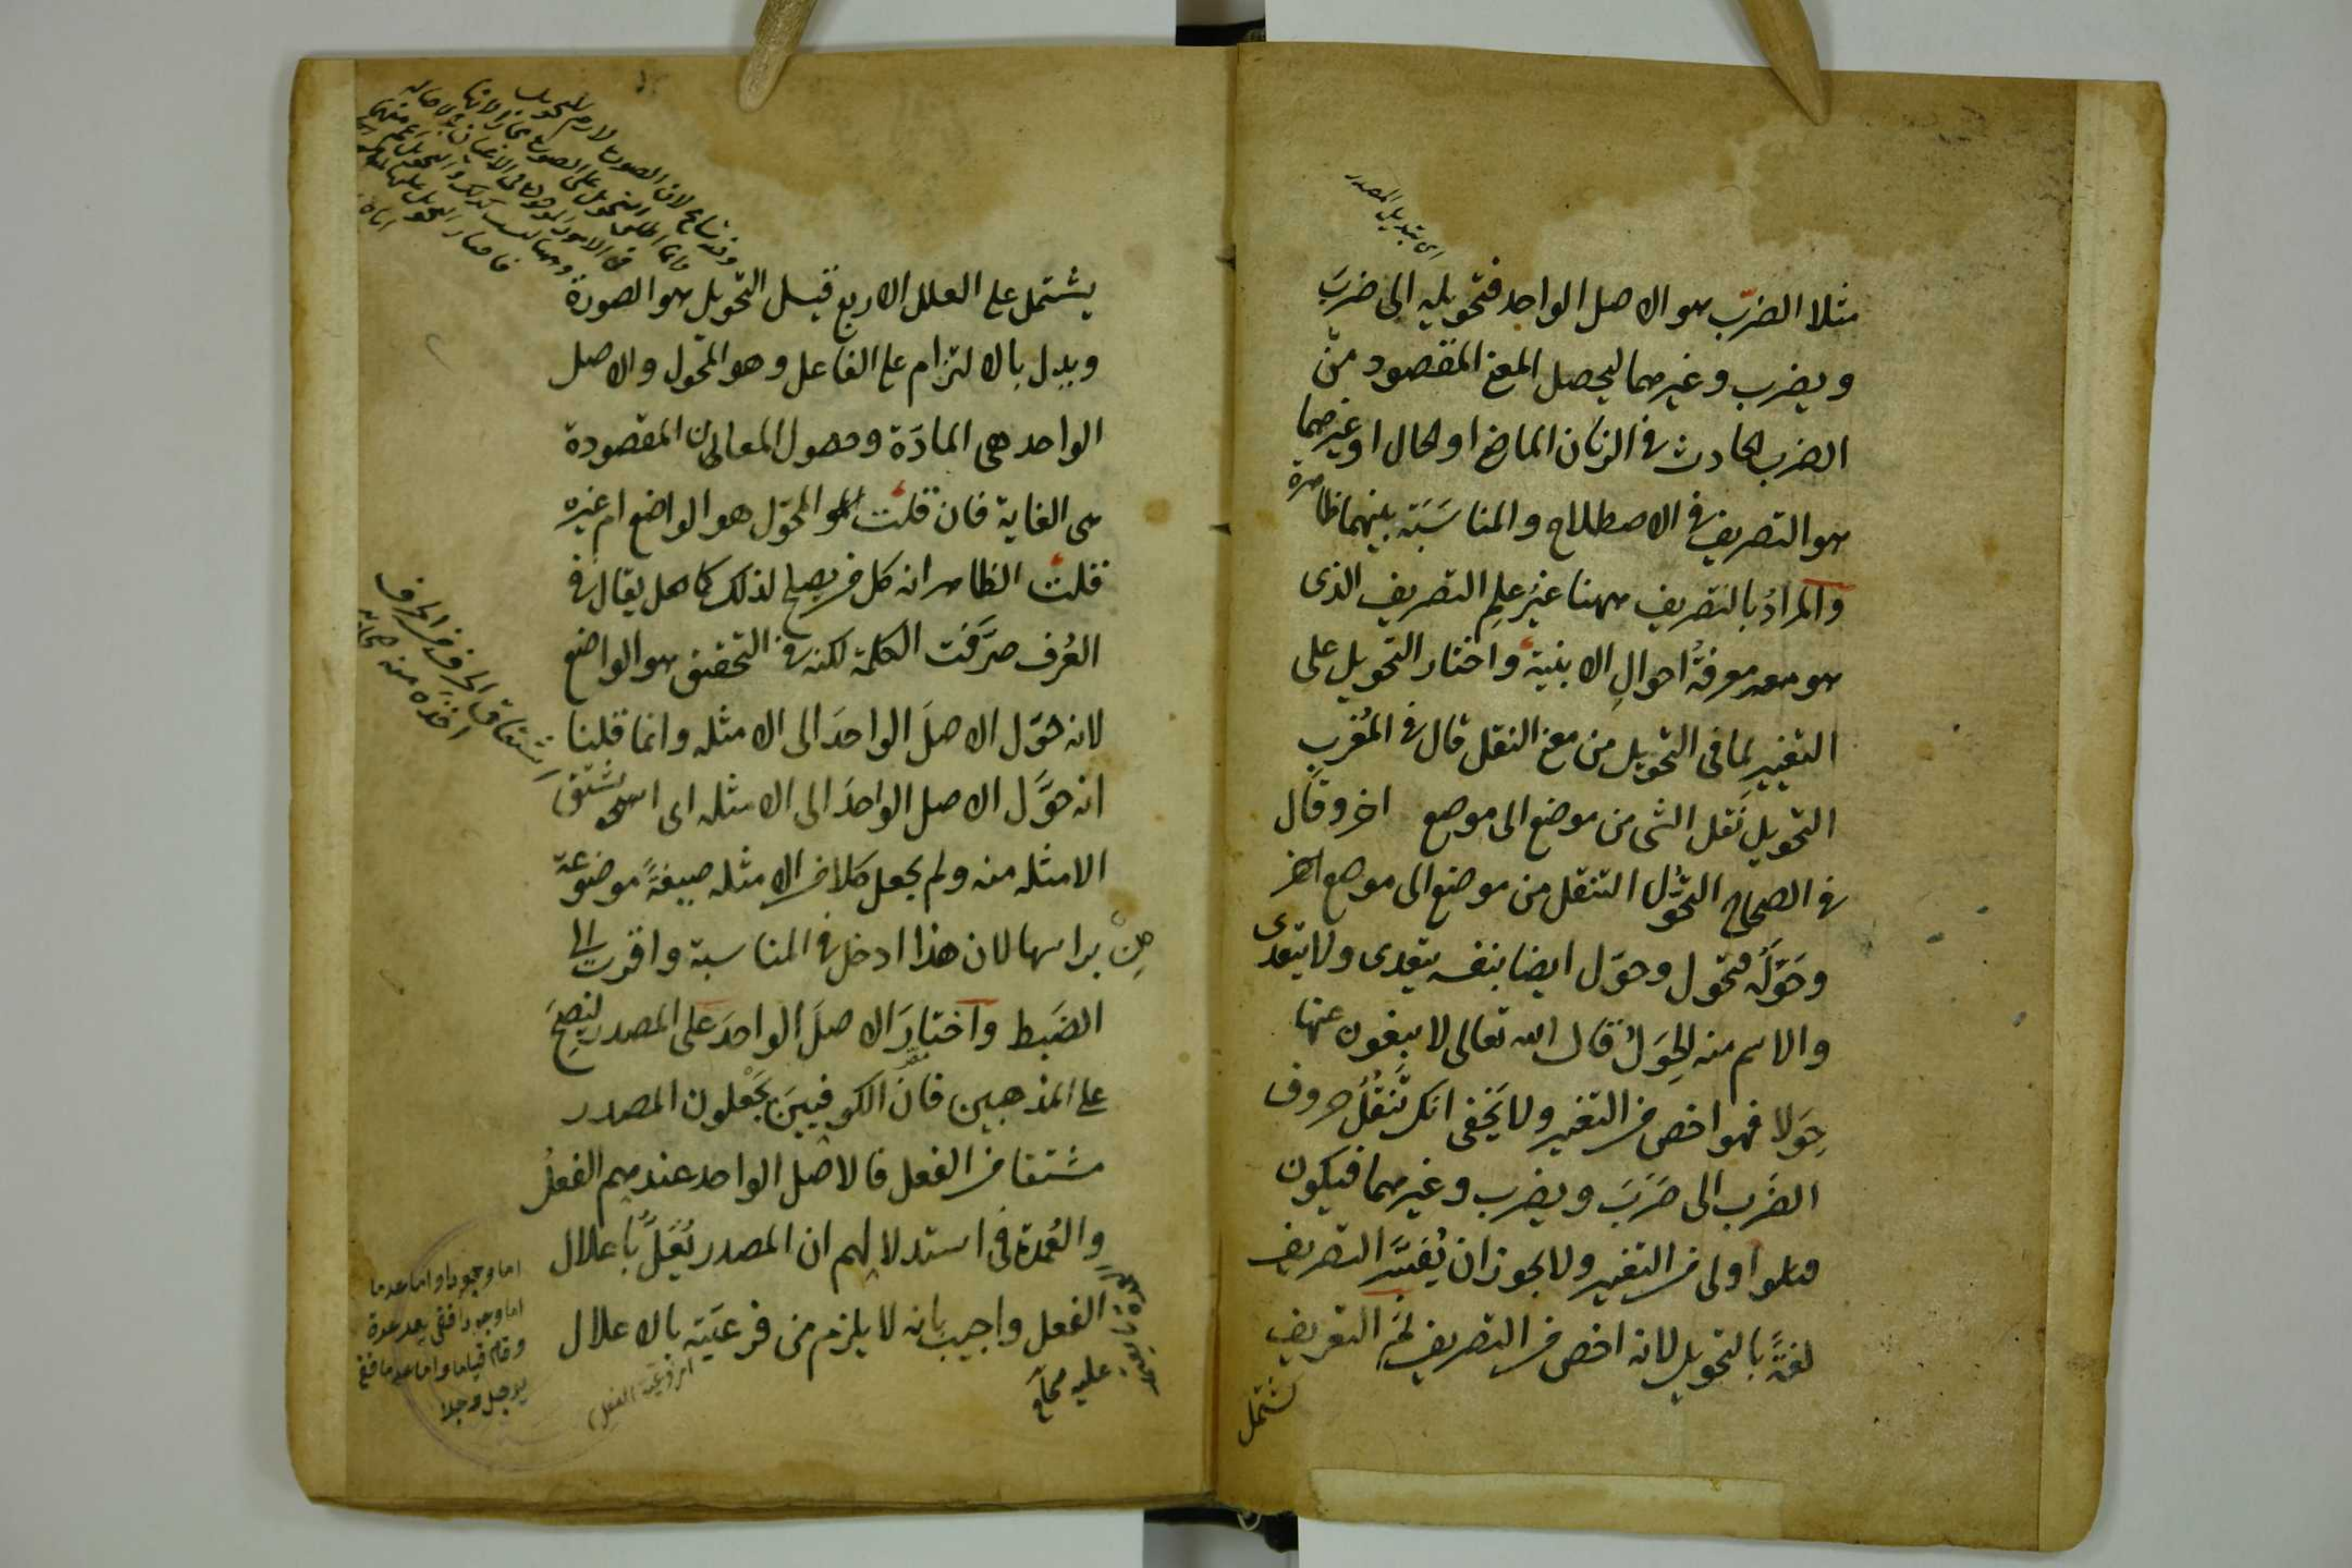 اى بتبديل المصدر
مثلا الضرب هو الاصل الواحد فتحويله الى ضربَ
ويضرب وغيرهما ليحصل المعنى المقصود من
الضرب الحادث فى الزمان الماضى او الحال او غيرهما
هو التصريف فى الاصطلاح والمناسَبَة بينهما ظاهرة
والمرادُ بالتصريف ههنا غيرُ علمِ التصريف الذى
هو معرفةُ احوالِ الابنية واختار التحويل على
التغييرِ لما فى التحويل من معنى النقل قال فى المُغربِ
التحويل نَقل الشى من موضع الى موضع اخر وقال
فى الصحاح التحَوُّل التنقل من موضع الى موضع اخر
وحَوَّلَه فتحول وحوّل ايضا بنفسه يتعدى ولا يتعدى
والاسم منه الحِوَلُ قال الله تعالى لا يبغون عنها
حِوَلا فهو اخص من التغيير ولا يَخفى انك تَنْقُلُ حروف
الضَرب الى ضَرَبَ ويضرب وغيرهما فيكون
اولى من التغيير ولا يجوز ان يُفَسَّرَ التصريف
لغةً بالتحويل لانه اخص من التصريف ثم التعريف
يشتمل
يشتمل على العلل الاربع قيل التحويل هو الصورة
ويدل بالالتزام على الفاعل وهو المحَوِّل والاصل
الواحد هى المادَة وحصول المعانى المقصودة
هى الغاية فان قلتَ المحوّل هو الواضع ام غيره
قلتُ الظاهر انه كل من يصلح لذلك كما يقال فى
العُرف صرَّفت الكلمة لكنه فى التحقيق هو الواضع
لانه حوّل الاصلَ الواحدَ الى الامثله وانما قلنا
انه حوَّل الاصل الواحدَ الى الامثله اى اشتق
الامثله منه ولم يجعل كلا من الامثله صيغةً موضوعة
براسها لان هذا ادخل فى المناسبة واقرب الى
الضَبط واختارَ الاصلَ الواحدَ على المصدر ليَصِحَّ
على المذهبين فانَ الكوفيينَ يَجْعلون المصدر
مشتقا من الفعل فالاصل الواحد عندهم الفعلُ
والعُمدة فى استدلالهم ان المصدر يُعَلُّ باعلال
الفعل واجيب بانه لا يلزم من فرعيّته بالاعلال
اشتقاق الحرف من الحرف
اخذه منه صحاح
اما وجودا واما عدما
اما وجودا ففى يعد عدة
وقام قياما واما عدما ففى
يوجل وجلا